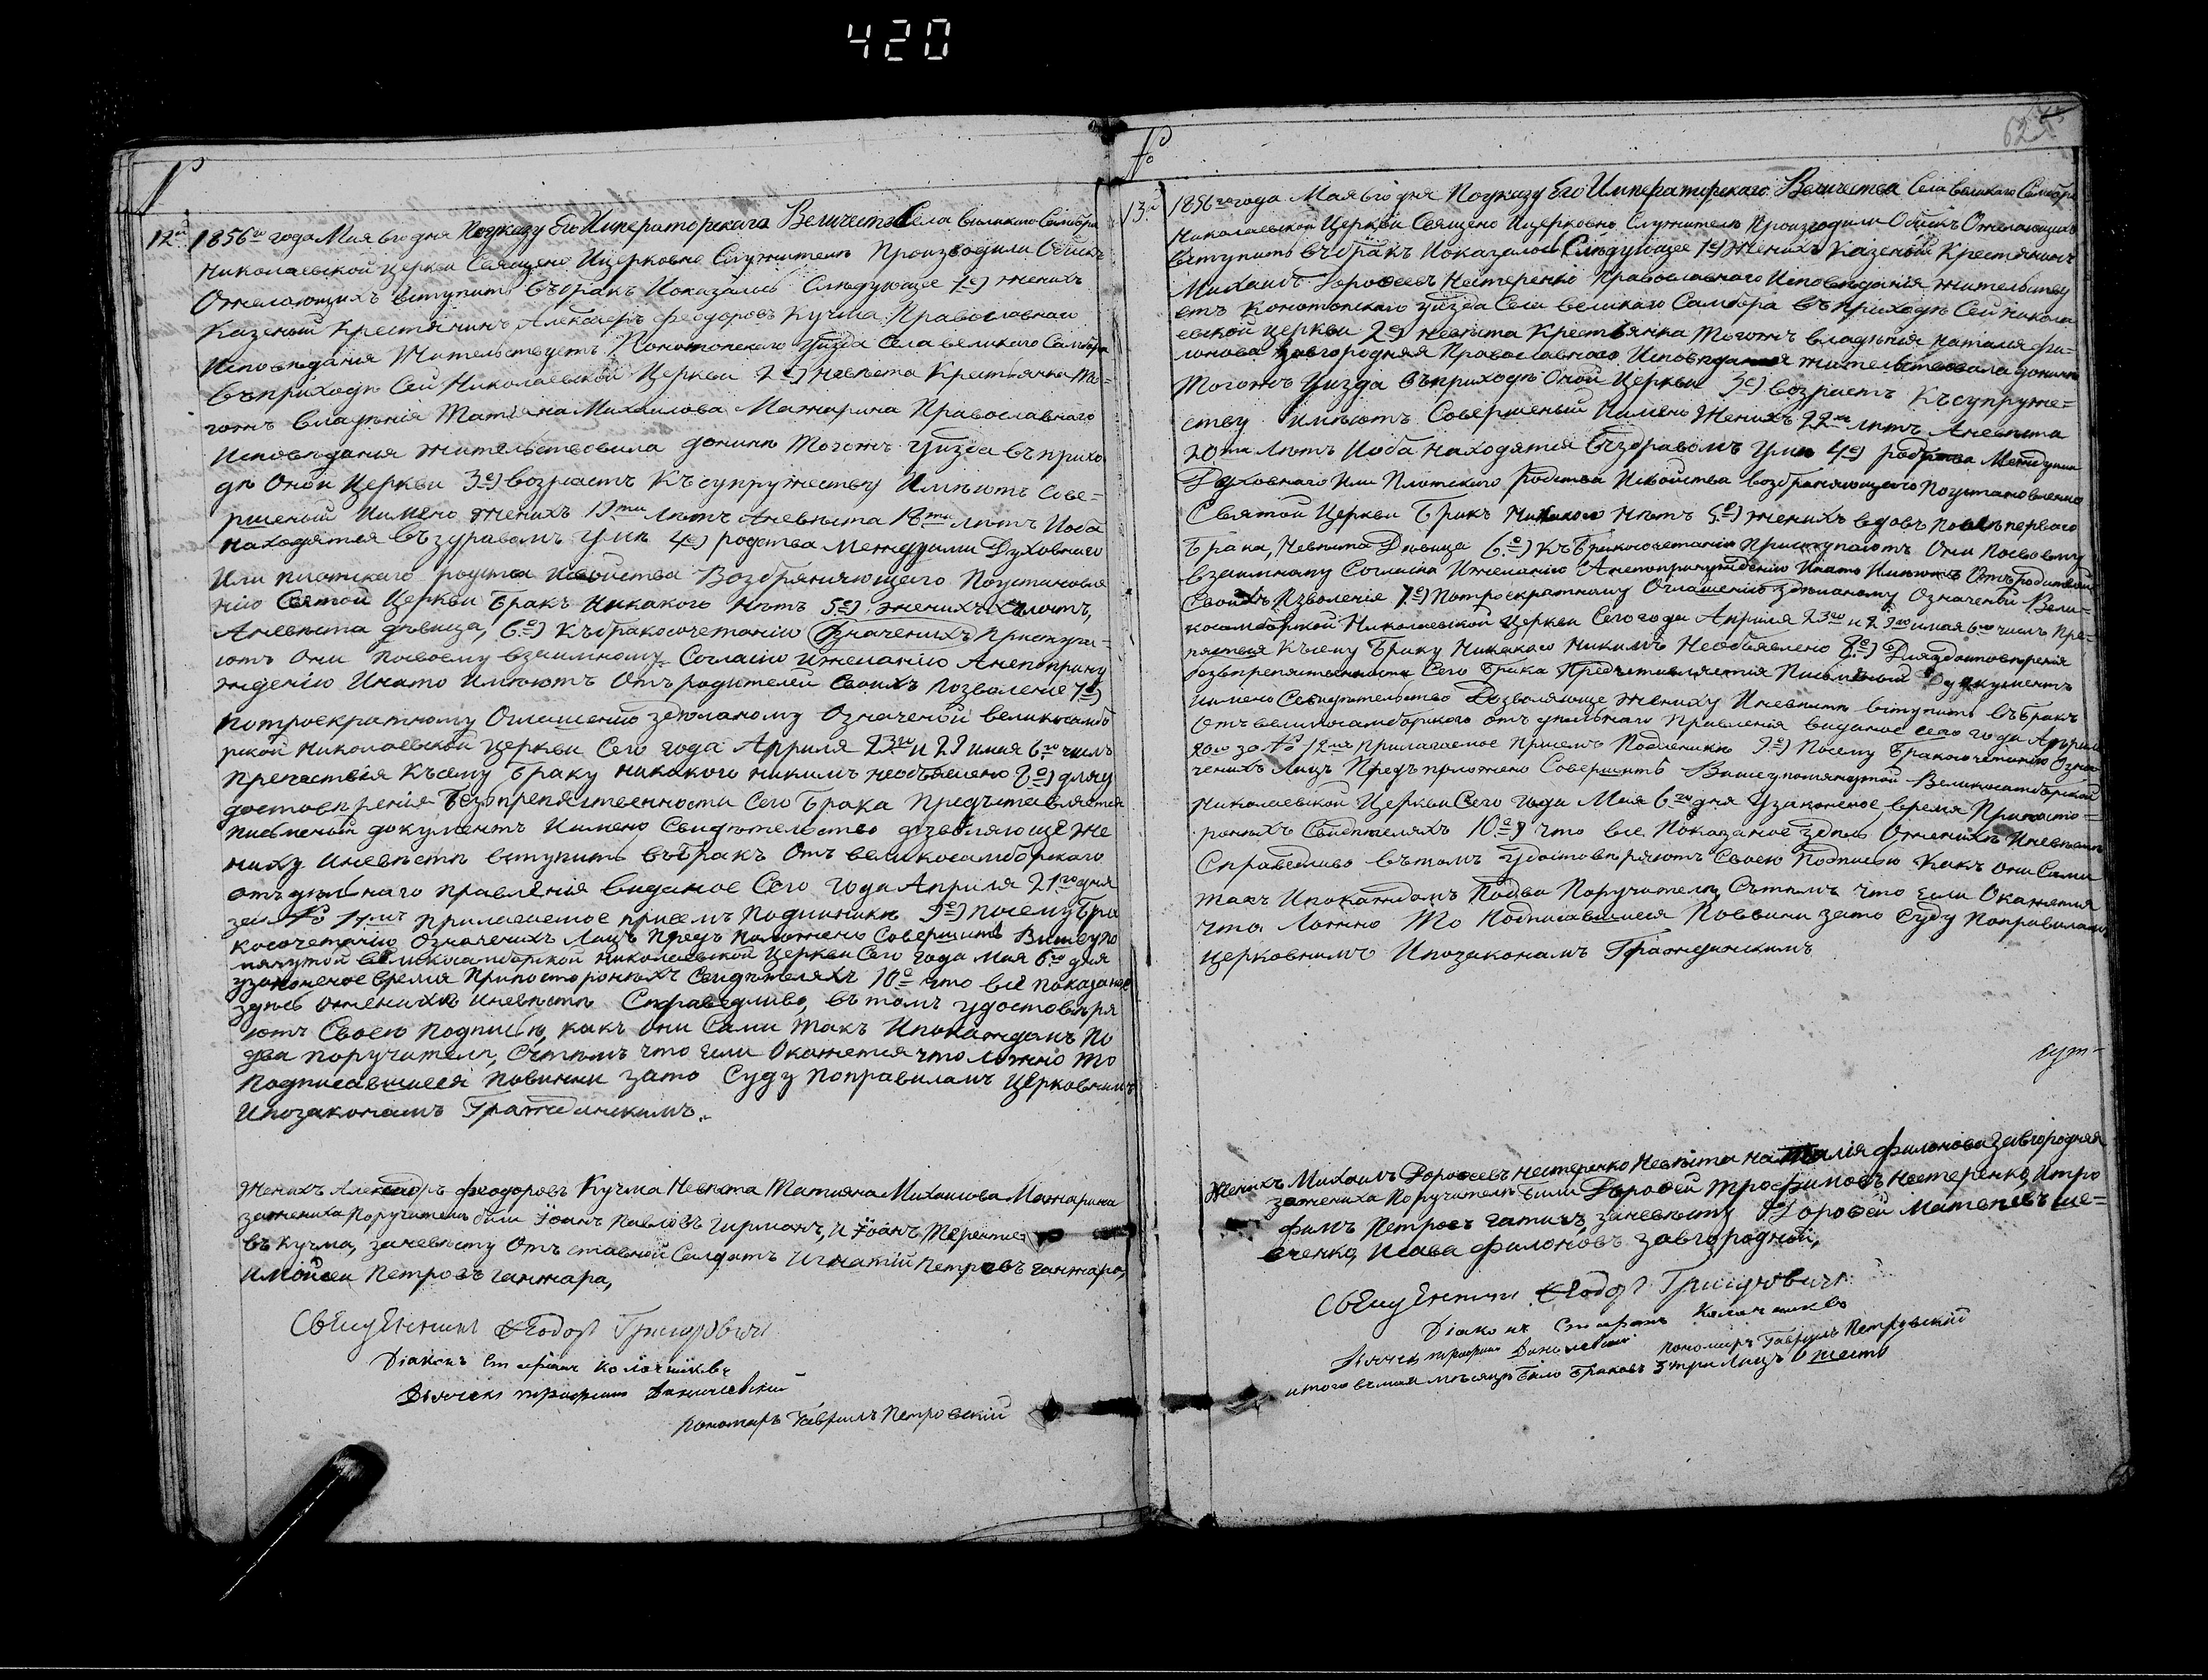 420
№
12й
1856го года Мая 6го дня Поуказу Его Императорскаго Величества Села Великаго Самбора
Николаевской церкви Священо Ицерковно Служители Производили Обискъ
Ожелающихъ вступить въбракъ Иоказалось Следующее 1е) женихъ
Казеный Крестянинъ Александръ Феодоровъ Кучма Православнаго
Исповедания Жительствуетъ Конотопскаго Уизда Села великаго Самбора
въприходе Сей Николаевской Церкви 2е) невеста Крестьянка То-
гожъ владения Татияна Михаилова Мажарина Православнаго
Исповедания жительствовала донине Тогожъ Уизда въприхо
де Оной Церкви 3е) возрастъ Късупружеству Имеютъ сове-
ршеный Имено женихъ 19ти летъ Аневеста 18ти летъ Иоба
находятся въздравомъ Уме 4е) родства Междуими Духовнаго
Или плотскаго родства Исвойства Возбраняющего Поустановле
нию Святой Церкви бракъ Никакого Нетъ 5е) женихъ Холостъ,
Аневеста девица, 6е) Къбракосочетанию Означенихъ Приступа-
ютъ Они Посвоему взаимному Согласию Ижеланию Анепоприну
ждению Инато Имеютъ Отъ родителей Своихъ Позволение 7е)
Потроекратному Оглашению зделаному Означеной великосамбо
рской Николаевской Церкви Сего года Априля 23го и 29 имая 6го числъ
Препятствия Късему браку никакого никимъ необъявлено 8е) дляу
достоверения безопрепятственности Сего Брака Предъставляется
письменый документъ Имено Свидетельство дозволяюще Же
ниху Иневесте вступить въбракъ Отъ великосамборскаго
отъдельнаго правления виданое Сего года Априля 21го дня
за № прилагаемое присемъ Подлиннике 9е) посему бра
косочетанию Означенихъ Лицъ Предъ положено Совершить Вишеупо
мянутой Великосамборской Николаевской Церкви Сего года Мая 6го дня
узаконеное время Припосторонихъ Свидетеляхъ 10е что все показаное
здесь Ожених Иневесте Справедливо, втомъ удостоверя
ютъ Своею Подписю, какъ они Сами такъ Ипокаждомъ По
два поручителя, Стемъ что если Окажется что ложно то
Подписавшиеся повинни зато Суду поправиламъ Церковнимъ
Ипозаконамъ Гражданскимъ.
Женихъ Александръ Феодоровъ Кучма Невеста Татияна Михаилова Мажарина
зажениха Поручители били Iоанъ Павловъ Гирманъ, И Iоанъ Терентие
въ Кучма, заневесту Отъ ставной Салдатъ Игнатий Петровъ Ганжара,
Имойсей Петровъ Ганжара,
Священникъ Феодоръ Григоровичъ
Дiаконъ Стефанъ Колачниковъ
Дьячекъ Трофимъ Даниlевский
пономаръ Гавриилъ Петровский
№
13й
1856го года Мая 6го дня Поуказу Его Императорскаго Величества Села Великаго Самбора
Николаевской Церкви Священо Ицерковно Служители Производили Обискъ Ожелающихъ
вступить въбракъ Иоказалось Следующее 1е) Женихъ Казеный Крестянинъ
Михаилъ Дорофеевъ Нестеренко Православнаго Исповедания жительству
етъ Конотопскаго Уизда Села Великаго Самбора въприходе Сей Никола
евской церкви 2е) невеста Крестьянка Тогожъ владения Наталия Фи-
лонова Завгородняя Православнаго Исповедания жительствовала донине
Тогожъ Уизда въприходе Оной Церкви 3е) возрастъ Късупруже-
ству имеютъ Совершеный Имено Женихъ 22ти летъ Аневеста
20ти Летъ Иоба находятся въздравомъ Уме 4е) родства Междуими
Духовнаго Или Плотскаго Родства Исвойства возбраняющего Поустановлению
Святой Церкви Бракъ Никакого Нетъ 5е) женихъ вдовъ После перваго
Брака, Невеста Девица 6е) Къбракосочетанию Приступаютъ Они Посвоему
взаимному Согласию Ижеланию Анепопринуждению Инато Имеютъ Отъ Родителей
Своихъ Позволения 7е) Потроекратному Оглашению зделаному Означеной Вели-
косамборской Николаевской Церкви Сего года Априля 23го и 29го имая 6го числъ Пре-
пятствия Късему Браку Никакого Никимъ Необъявлено 8е) Дляудостоверения
безпрепятственности Сего Брака Предъставляется Письменый Документъ
Имено Свидетельство Дозволяюще Жениху Иневесте вступить въбракъ
Отъ великосамборскаго отъдельнаго Правления виданое сего года Априля
20го за № 12мъ Прилагаемое Присемъ Подленнике 9е) Посему Бракосочетанию Озна-
ченихъ Лицъ Предъ положено Совершить Вишеупомянутой Великосамборской
Николаевской Церкви Сего года Мая 6го дня Узаконеное время Припосто-
ронихъ Свидетеляхъ 10е) что все Показаное здесь Оженихе Иневесте
Справедливо въ томъ Удостоверяютъ Своею Подписю Какъ они Сами
такъ Ипокаждомъ Подва Поручителя, Стемъ что если Окажется
что Ложно То Подписавшиеся Повинни зато Суду Поправиламъ
Церковнимъ Ипозаконамъ Гражданскимъ
Женихъ Михаилъ Дорофеевъ Нестеренко Невеста Наталия Филонова Завгородняя
зажениха Поручители били Дорофей Трофимовъ Нестеренко, Итро
фимъ Петровъ Гатичъ, заневесту Дорофей Матвеевъ Ше-
вченко, Исава Филоновъ Завгородной,
Священникъ Феодоръ Григоровичъ
Дiаконъ Стефанъ Колачниковъ
Дьячекъ Трофимъ Данилевский пономаръ Гавриилъ Петровский
итого въмаи месяце било браковъ 3 три Лицъ 6 шесть